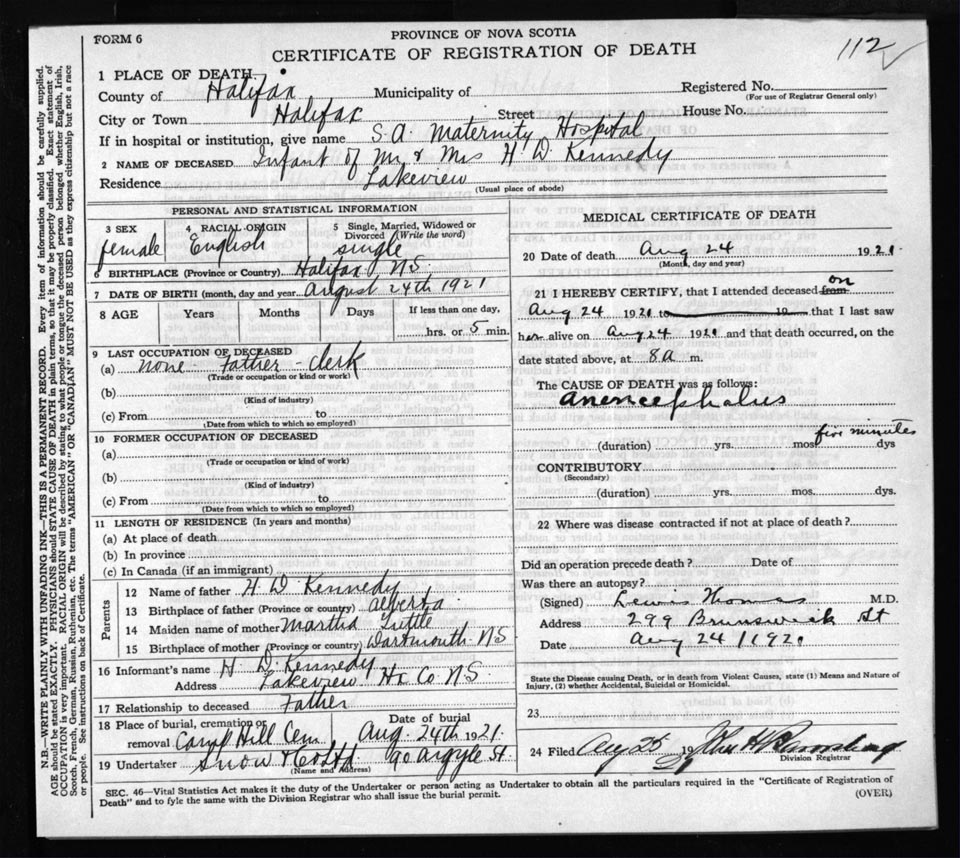 FORM 6
PROVINCE OF NOVA SCOTIA
CERTIFICATE OF REGISTRATION OF DEATH
112
1 PLACE OF DEATH
County of Halifax Municipality of Registered No.
(For use of Registrar General only)
City or Town Halifax Street House No.
If in hospital or institution, give name S.A. Maternity Hospital
2 NAME OF DECEASED Infant of Mr & Mrs H. D. Kennedy
Residence Lakeview
(Usual place of abode)
PERSONAL AND STATISTICAL INFORMATION
3 SEX female
4 RACIAL ORIGIN English
5 Single, Married, Widowed or Divorced (Write the word) single
6 BIRTHPLACE (Province or Country) Halifax N.S.
7 DATE OF BIRTH (month, day and year August 24th 1921
8 AGE Years Months Days If less than one day,
hrs. or 5 min.
9 LAST OCCUPATION OF DECEASED
(a) none - Father - clerk
(Trade or occupation or kind or work)
(b)
(Kind of industry)
(c) From to
(Date from which to which so employed)
10 FORMER OCCUPATION OF DECEASED
(a)
(Trade or occupation or kind of work)
(b)
(Kind of industry)
(c) From to
(Date from which to which so employed)
11 LENGTH OF RESIDENCE (In years and months)
(a) At place of death
(b) In province
(c) In Canada (if an immigrant)
Parents
12 Name of father H. D. Kennedy
13 Birthplace of father (Province or country) Alberta
14 Maiden name of mother Martha Tuttle
15 Birthplace of mother (Province or country) Dartmouth N.S
16 Informant's name H. D. Kennedy
Address Lakeview Hx Co N.S.
17 Relationship to deceased Father
18 Place of burial, cremation or removal Camp Hill Cem
Date of burial Aug. 24th 1921.
19 Undertaker Snow & Co Ltd 90 Argyle St.
(Name and Address)
MEDICAL CERTIFICATE OF DEATH
20 Date of death Aug 24 1921
(Month, day and year)
21 I HEREBY CERTIFY, that I attended deceased from on
Aug 24 1921 to 19 that I last saw
her alive on Aug 24 1921 and that death occurred, on the
date stated above, at 8 a m.
The CAUSE OF DEATH was as follows:
Anencephalus
five minutes
(duration) yrs. mos. dys
CONTRIBUTORY
(Secondary)
(duration) yrs. mos. dys.
22 Where was disease contracted if not at place of death?
Did an operation precede death? Date of
Was there an autopsy?
(Signed) Lewis Thomas M.D.
Address 299 Brunswick St
Date Aug 24 1921
State the Disease causing Death, or in death from Violent Causes, state (1) Means and Nature of
Injury, (2) whether Accidental, Suicidal or Homicidal.
23
24 Filed Aug 25 19
Division Registrar
SEC. 46—Vital Statistics Act makes it the duty of the Undertaker or person acting as Undertaker to obtain all the particulars required in the "Certificate of Registration of
Death" and to fyle the same with the Division Registrar who shall issue the burial permit. (OVER)
N.B.—WRITE PLAINLY WITH UNFADING INK—THIS IS A PERMANENT RECORD. Every item of information should be carefully supplied.
AGE should be stated EXACTLY. PHYSICIANS should STATE CAUSE OF DEATH in plain terms, so that it may be properly classified. Exact statement of
OCCUPATION is very important. RACIAL ORIGIN will be described by stating to what people or tongue the deceased person belonged whether English, Irish,
Scotch, French, German, Russian, Ruthenian, etc. The terms "AMERICAN" OR "CANADIAN" MUST NOT BE USED as they express citizenship but not a race
or people. See instructions on back of Certificate.